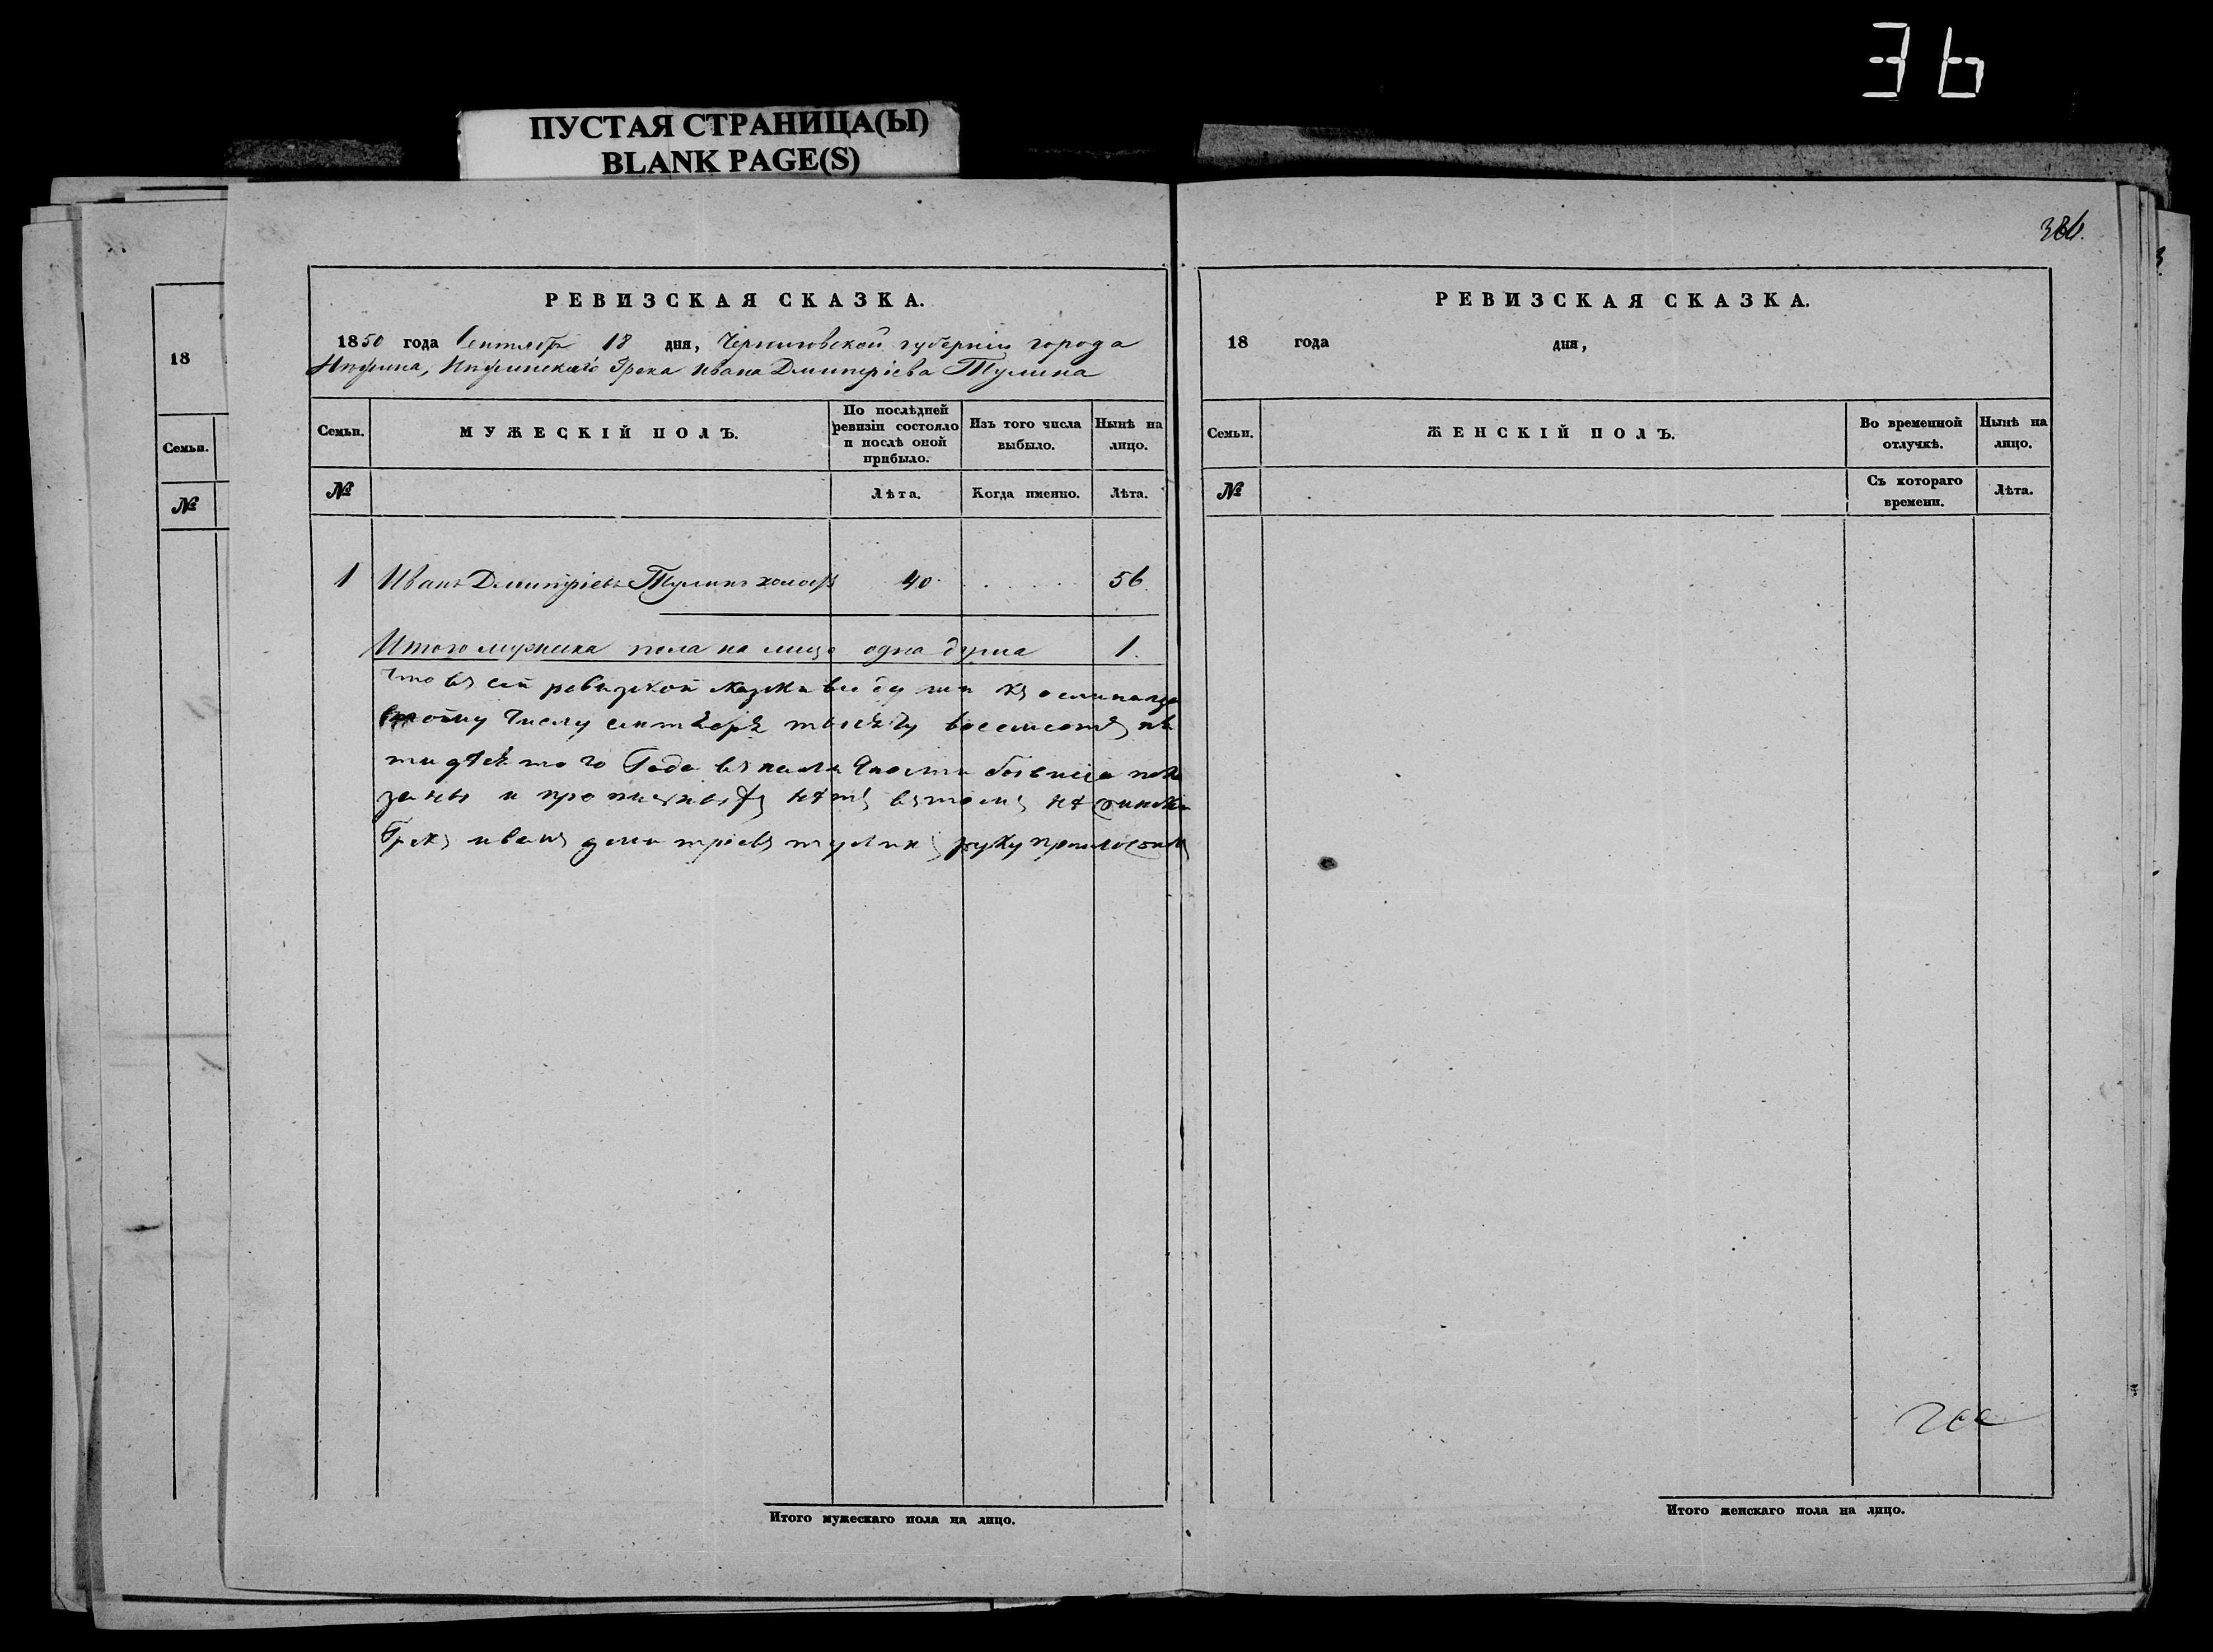 36
ПУСТАЯ СТРАНИЦА(Ы)
BLANK PAGE(S)
18
Семьи.
№
РЕВИЗСКАЯ СКАЗКА.
1850 года Сентября 18 дня, Черниговской губерніи города
Нѣжина, Нѣжинскаго Грека Ивана Дмитріева Тулина
Семьи.
МУЖЕСКІЙ ПОЛЪ.
По послѣдней ревизіи состояло и послѣ оной прибыло.
Изъ того числа выбыло.
Нынѣ на лицо.
№
Лѣта.
Когда именно.
Лѣта.
1 Иванъ Дмитріевъ Тулинъ холостъ 40 56
Итого мужеска пола на лицо одна душа 1.
что въ сей ревизкой сказки все души къ осмнадца
тому числу сентебре тысечу восемсотъ пе
тидесетого Года въ наличности бывшеи пока
заны и прописныхъ нѣтъ въ томъ нежински
Грекъ иванъ дмитріевъ тулинъ руку приложилъ
Итого мужескаго пола на лицо.
РЕВИЗСКАЯ СКАЗКА.
18 года дня,
Семьи.
ЖЕНСКІЙ ПОЛЪ.
Во временной отлучкѣ.
Нынѣ на лицо.
№
Съ котораго времени.
Лѣта.
Итого женскаго пола на лицо.